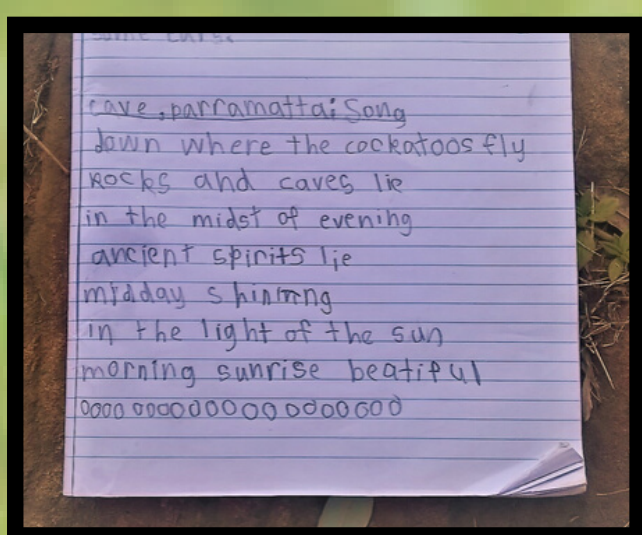 cave, parramatta: Song
down where the cockatoos fly
Rocks and caves lie
in the midst of evening
ancient spirits lie
midday shining
in the light of the sun
morning sunrise beatiful